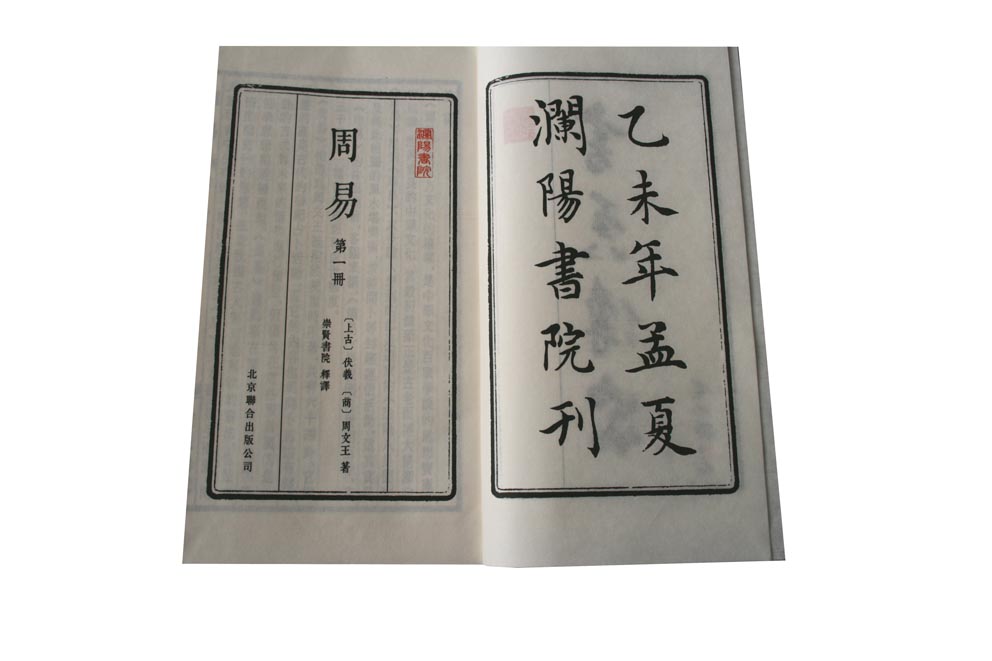 乙未年孟夏
瀾陽書院刊
瀾陽書院
周易 第一冊
〔上古〕伏羲〔商〕周文王 著
崇賢書院 釋譯
北京聯合出版公司